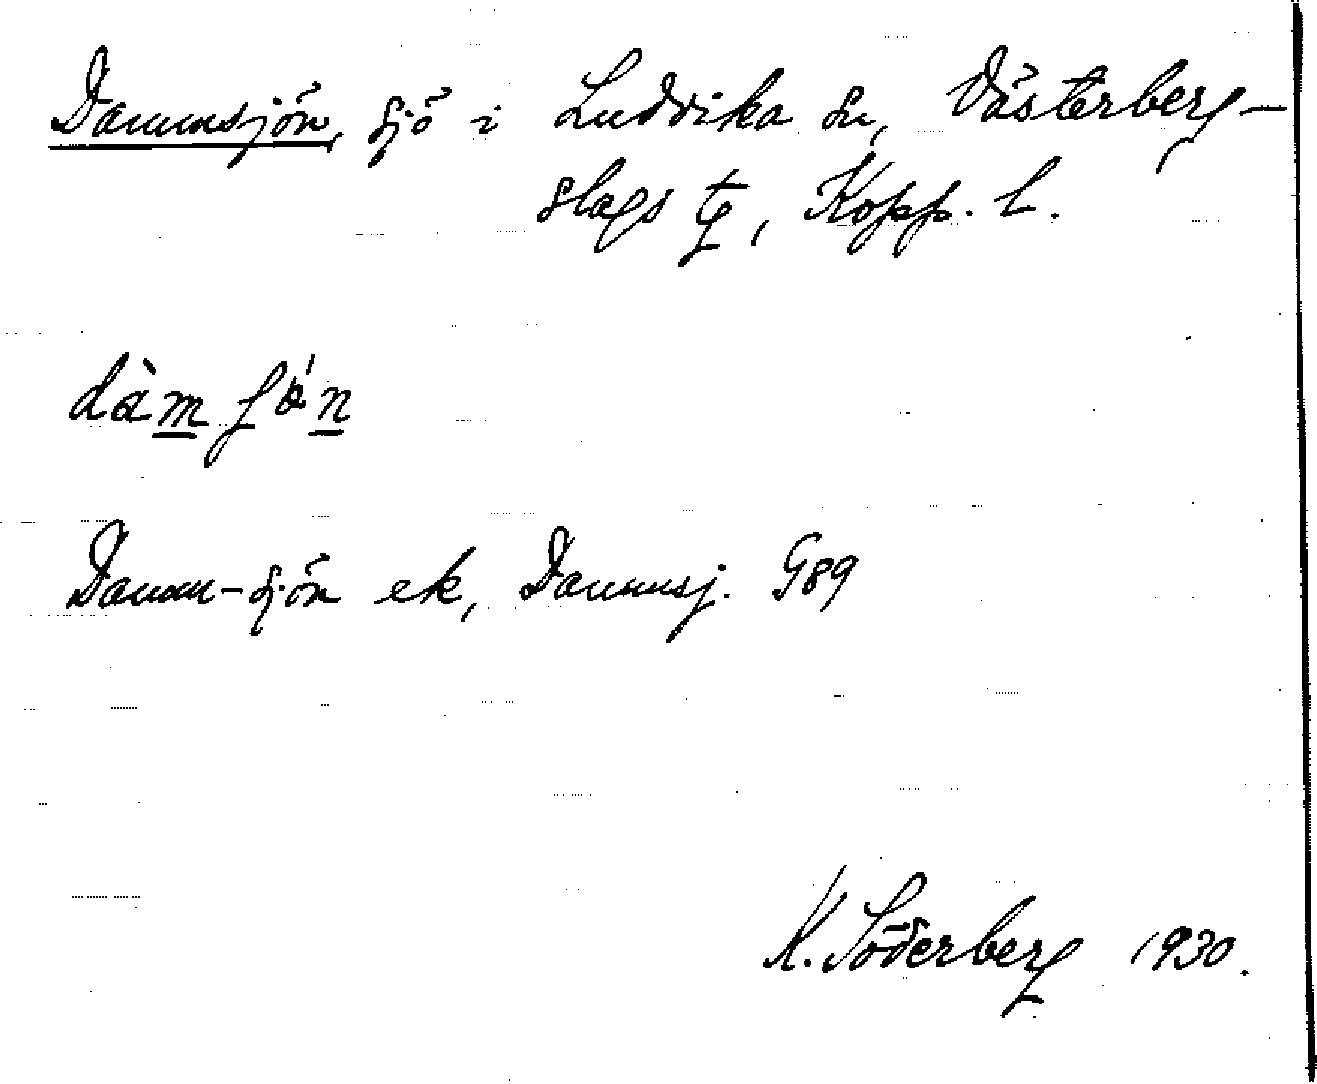 Dammsjön, sjö i Ludvika sn, Västerberg-
slags tg, Kopp. l.
dàm ʃǿn
Damm-sjön ek, Dammsj. G89
K. Söderberg 1930.